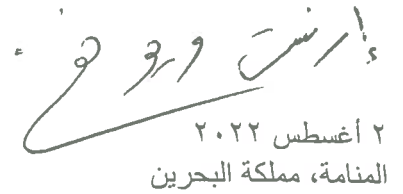 إرنست ويونغ
٢ أغسطس ٢٠٢٢
المنامة، مملكة البحرين